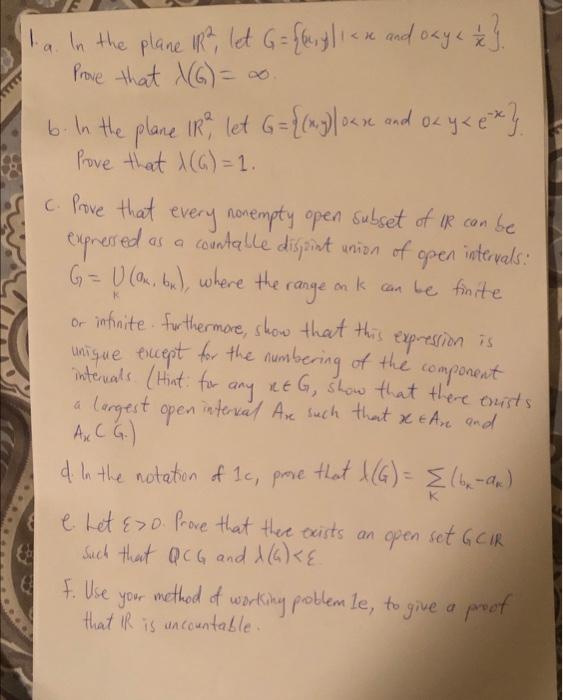 1.a. In the plane IR², let G={(x,y)|1<x and 0<y<1/x}.
Prove that λ(G)=∞.
b. In the plane IR², let G={(x,y)|0<x and 0<y<e^-x}.
Prove that λ(G)=1.
c. Prove that every nonempty open subset of IR can be
expressed as a countable disjoint union of open intervals:
G = ∪_K (a_K, b_K), where the range on k can be finite
or infinite. Furthermore, show that this expression is
unique except for the numbering of the component
intervals. (Hint: for any x∈G, show that there exists
a largest open interval A_x such that x∈A_x and
A_x ⊂ G.)
d. In the notation of 1c, prove that λ(G) = Σ_K (b_K-a_K)
e. Let ε>0. Prove that there exists an open set G⊂IR
such that Q⊂G and λ(G)<ε.
f. Use your method of working problem 1e, to give a proof
that IR is uncountable.